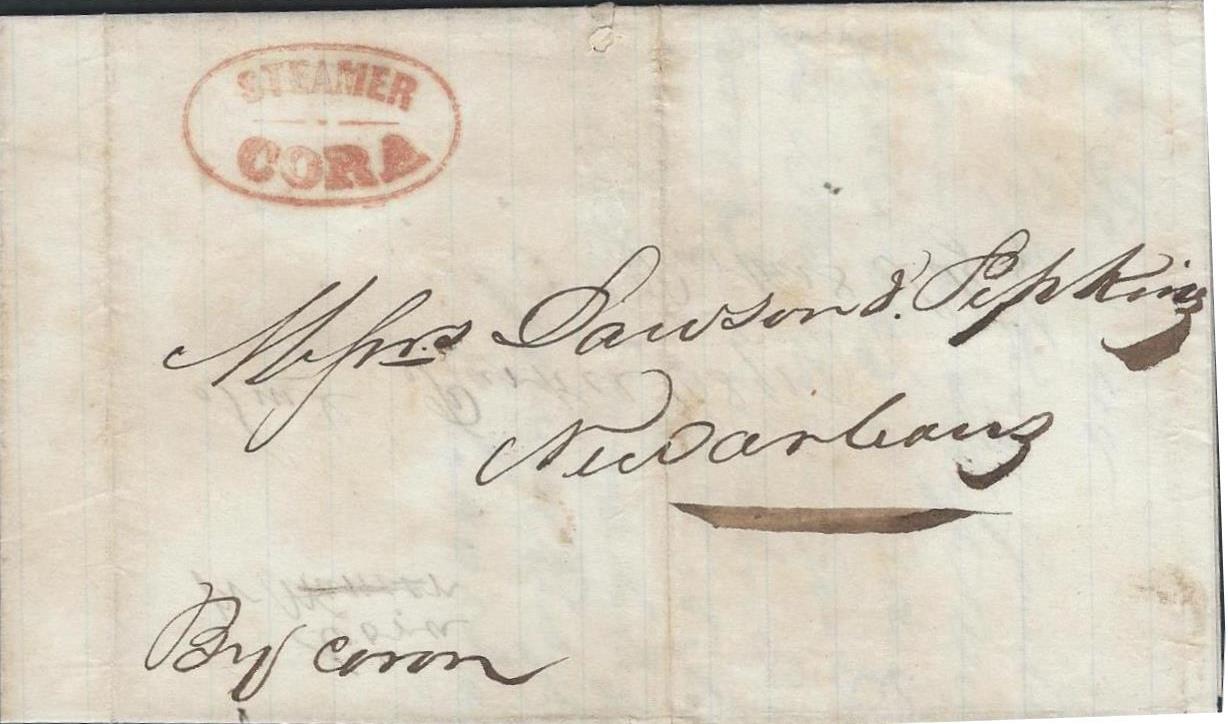 STEAMER
CORA
Messrs Dawson &. Pipking
Newarleans
By coron